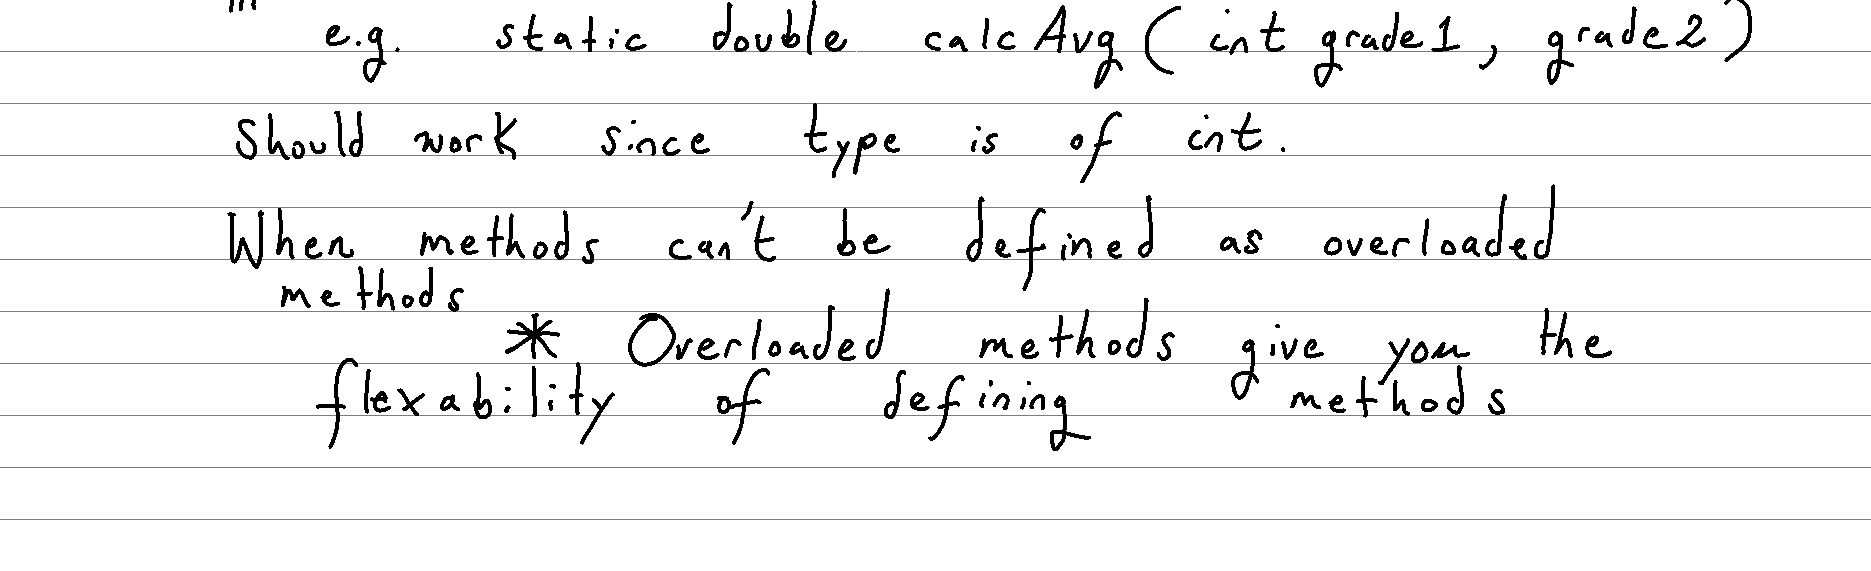 e.g. static double calcAvg (int grade1, grade2)
Should work since type is of int.
When methods can't be defined as overloaded
methods
* Overloaded methods give you the
flexability of defining methods